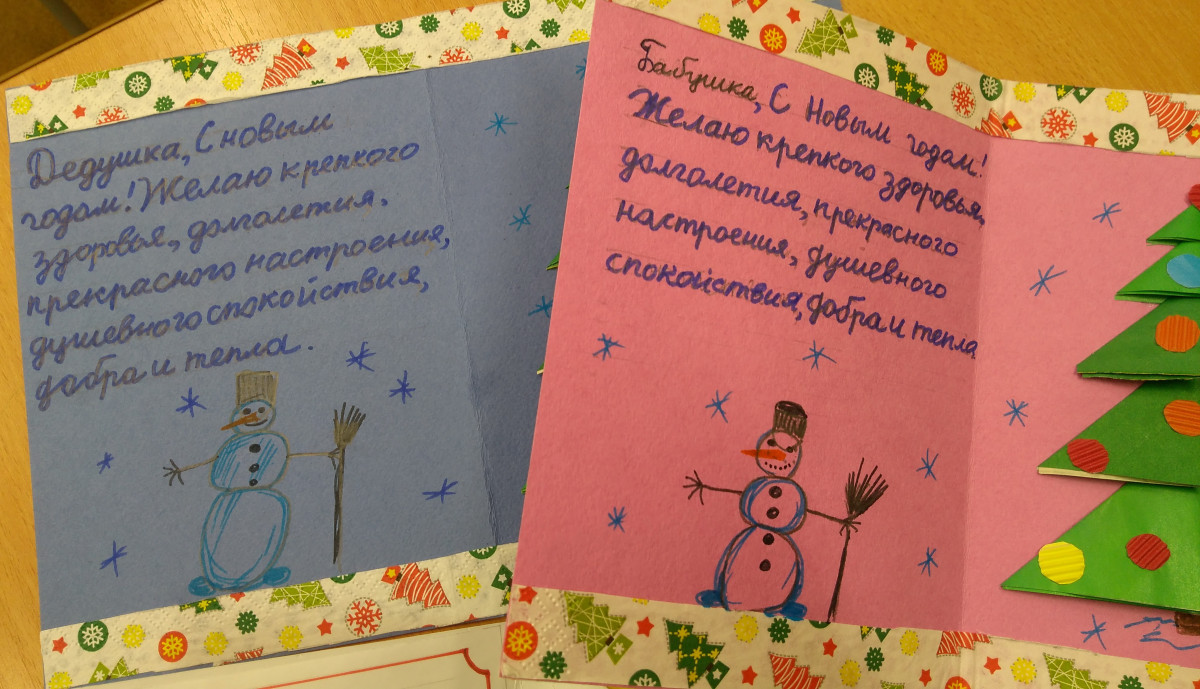 Дедушка, С новым
годом! Желаю крепкого
здоровья, долголетия.
прекрасного настроения,
душевного спокойствия,
добра и тепла.
Бабушка, С Новым годом!
Желаю крепкого здоровья,
долголетия, прекрасного
настроения, душевного
спокойствия, добра и тепла